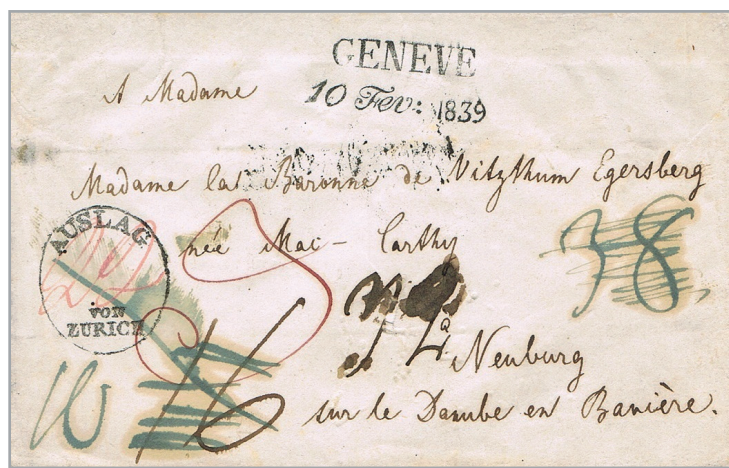 GENEVE
10 Fev: 1839
A Madame
Madame la Baronne de Vitzthum Egersberg
née Mac-Carthy
AUSLAG
VON
ZURICH
38
16
Neuburg
sur le Danube en Bavière.